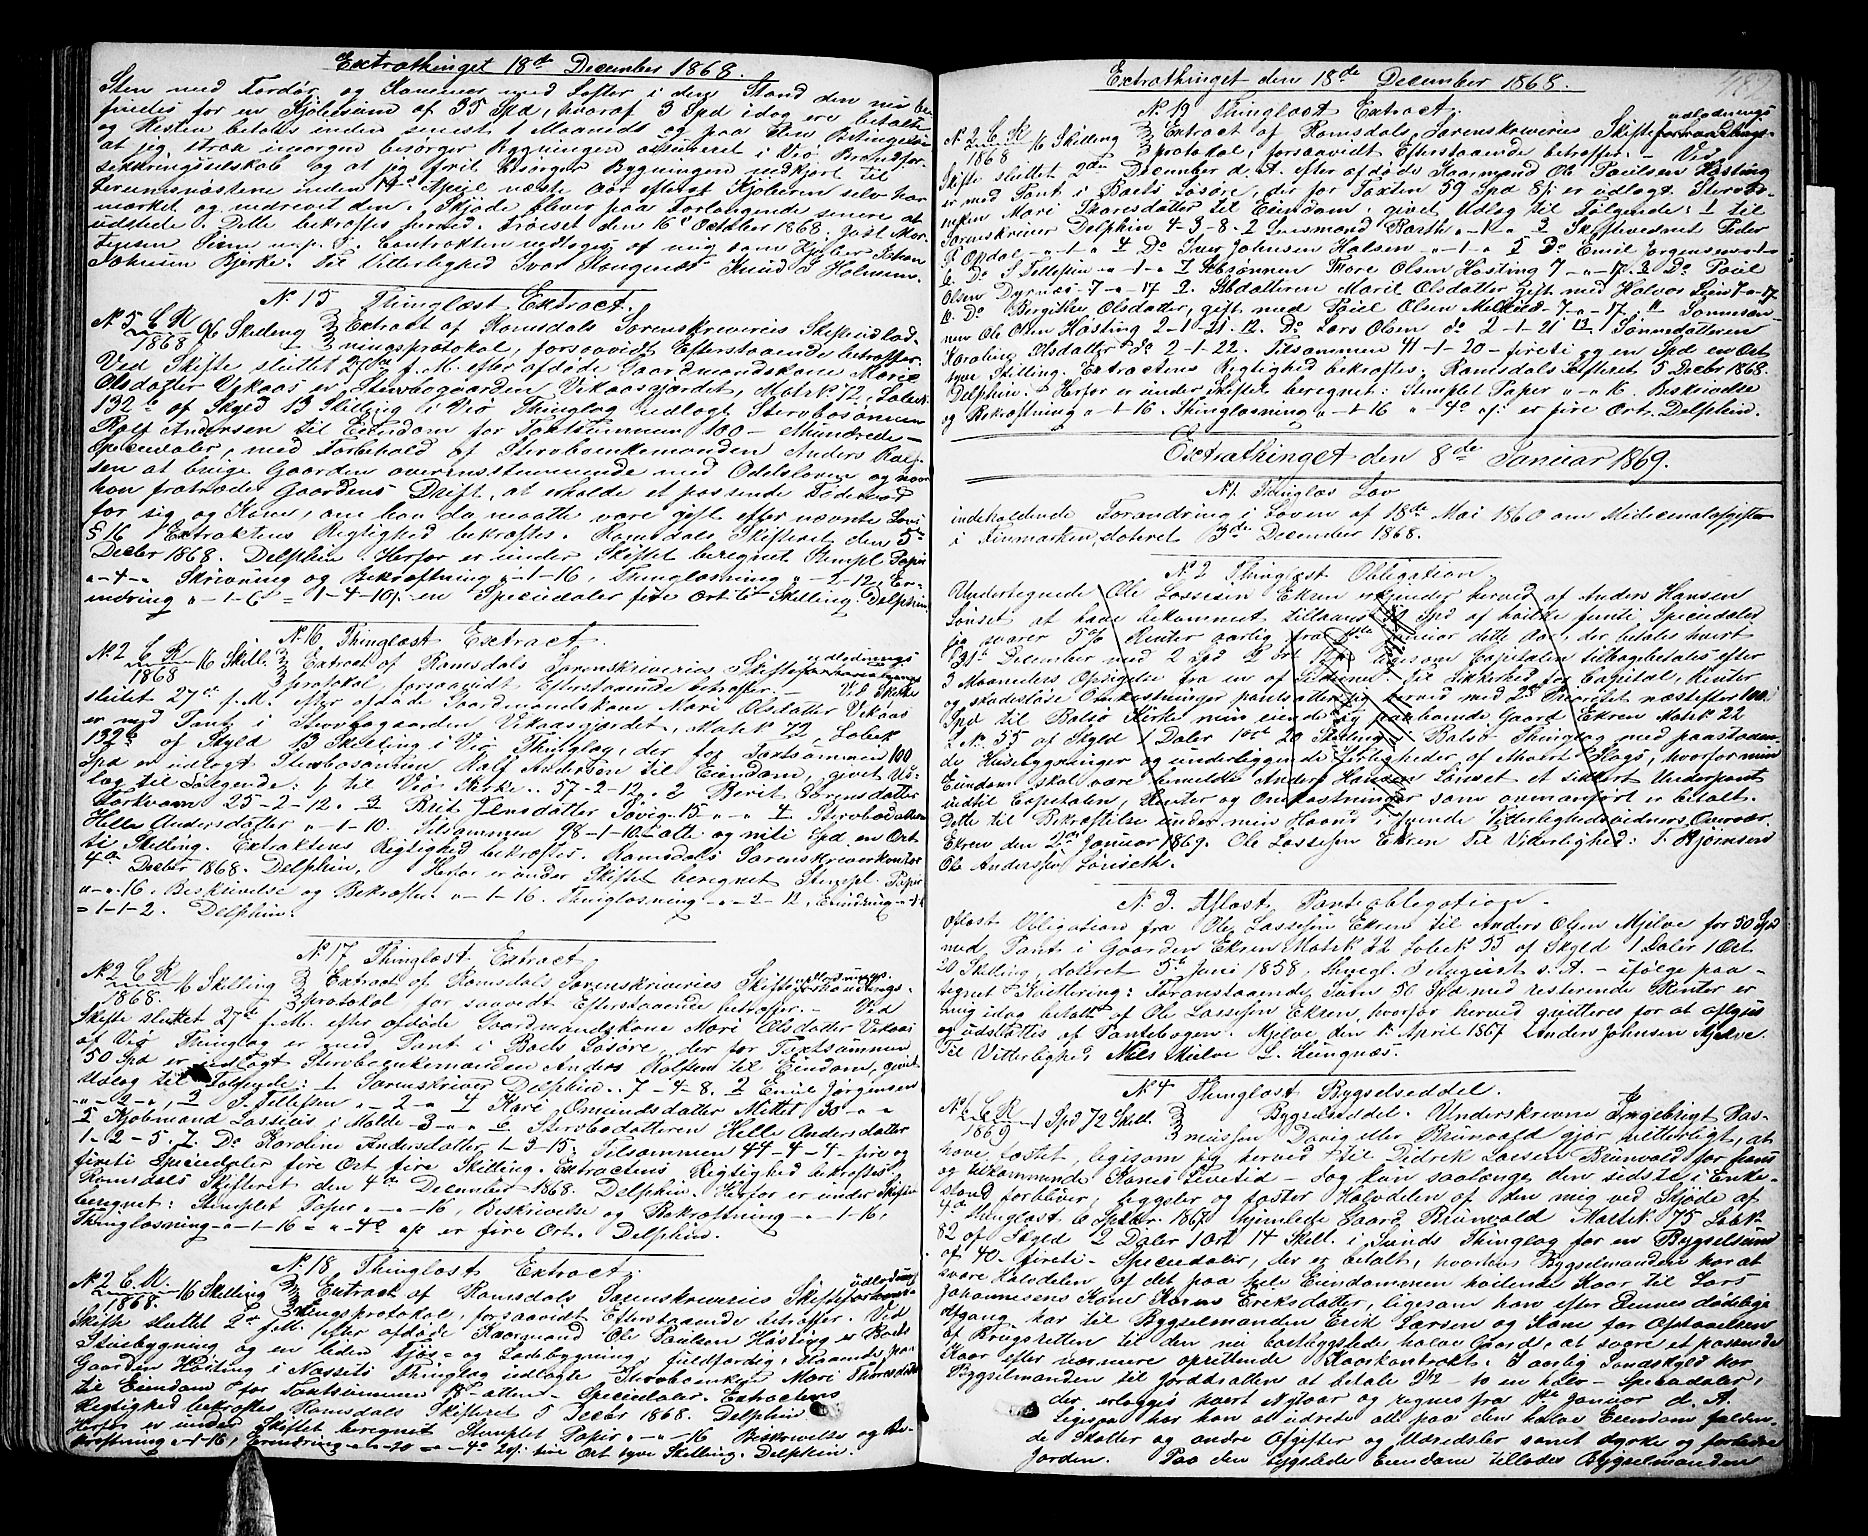 Extrathinget 18de December 1868.
Sten med Fordør og Kammer med Lofter i den Stand den nu be-
findes for en Kjøbesum af 35 Spd, hvoraf 3 Spd idag ere betalte
og Resten betales inden senest 1 Maaned og paa den Betingelse
at jeg strax imorgen besørger Bygningen assureret i Veø Brandfor-
sikkringsselskab og at jeg frit besørger Bygningen nedkjørt til
inden 14de April næste Aar. Meost Kjøberen selv har
mærket og nedrevet den. Skjøde bliver paa Forlangende senere at
udstede. Dette bekræftes herved. Troiset den 16de October 1868. Jost Mor-
tensen m. p. P. Contrakten vedtages af mig som Kjøber Johan
Johnsen Bjerke. Til Vitterlighed Ivar Knud O Holmem.
N. 15 Thinglæst Extract.
N. 5 C. R. 96 Skilling Extract af Romsdals Sorenskriveries Skifteudlæg-
1868 ningsprotokol, forsaavidt Efterstaaende betræffer.
Ved Skifte sluttet 27de f. M. efter afdøde Gaardmandskone Marie
Olsdatter Vekaas er Sterbogaarden Vekaasgjærdet, Mat. N. 72, Løbe N.
132 b af Skyld 13 Skilling i Veø Thinglag udlagt Sterbosønnen
Rolf Andersen til Eiendom for Taxtsummen 100 - Et Hundrede -
Speciedaler, med Forbehold af Sterboenkemanden Anders Rolf-
sen at bruge Gaarden overensstemmende med Odelsloven og naar
han fratræder Gaardens Drift, at erholde et passende Føderaad
for sig og Kone, om han da maatte være gift efter nævnte Lovs
§ 16. Extraktens Rigtighed bekræftes. Romsdals Skifteret den 5te
Decbr 1868. Delphin. Herfor er under Skiftet beregnet Stempl. Papir
" - 4 - " Skrivning og Bekræftning " - 1 - 16, Thinglæsning " - 2 - 12, Er-
indring " - 1 - 6 = 1 - 4 - 10 p. en Speciedaler fire Ort ti Skilling. Delphin
N. 16 Thinglæst Extract.
N. 2 C. R. 16 Skill. Extract af Romsdals Sorenskriveries Skifteudlædnings
1868 protokol, forsaavidt Efterstaaende betræffer. - Ved Skifte
sluttet 27de f. M. efter afdøde Gaardmandskone Mari Olsdatter Vekaas
er med Pant i Sterbogaarden Vekaasgjærdet, Mat. N. 72, Løbe N.
132 b af Skyld 13 Skilling i Veø Thinglag, der for Taxtsummen 100
Spd er udlagt Sterbosønnen Rolf Andersen til Eiendom, givet Ud-
læg til Følgende: 1 til Veø Kirke .. 57-2-12. 2 Berit Sørensdatter
Torhvam 25-2-12. 3 Brit Jensdatter Søvig 15 - " - " 4 Sterbodatteren
Helle Andersdatter " - 1 - 10. Tilsammen 98-1-10 - otte og niti Spd en Ort
ti Skilling. Extraktens Rigtighed bekræftes. Romsdals Sorenskriverkontor
4de Decbr 1868. Delphin. Herfor er under Skiftet beregnet Stempl. Papir
" - " - 16. Beskrivelse og Bekræftn. " - 1 - 16. Thinglæsning " - 2 - 12, Erindring
= 1 - 1 - 2. Delphin.
N. 17 Thinglæst Extract.
N. 2 C. R. 16 Skilling Extract af Romsdals Sorenskriveries Skifteudlædnings-
1868 protokol for saavidt Efterstaaende betræffer. - Ved
Skifte sluttet 27de f. M. efter afdøde Gaardmandskone Mari Olsdatter Vekaas
af Veø Thinglag er med Pant i Boets Løsøre, der for Taxtsummen
50 Spd er udlagt Sterboenkemanden Anders Rolfsen til Eiendom, givet
Udlæg til Følgende: 1 Sorenskriver Delphin .. 7-4-8. 2 Emil Jørgensen
" - 2 - ", 3 J. Tillefsen " - 2 - " 4 Kari Omundsdatter Mittet 30 - " - "
5 Kjøbmand Lossius i Molde - 3 - " - " 6 Sterbodatteren Helle Andersdatter
1 - 2 - 5. 7 Do Karoline Andersdatter 1-3-15. Tilsammen 44-4-4 - fire og
fireti Speciedaler fire Ort fire Skilling. Extractens Rigtighed bekræftes.
Romsdals Skifteret den 4de December 1868. Delphin. Herfor er under Skiftet
beregnet: Stemplet Papir " - " - 16, Beskrivelse og Bekræftning " - 1 - 16.
Thinglæsning " - 1 - 16 = " - 4 - " er fire Ort. Delphin.
N. 18 Thinglæst Extract.
N. 2 C. R. 16 Skilling Extract af Romsdals Sorenskriveries Skifteudlædnings
1868. protokol, forsaavidt Efterstaaende betræffer. Ved
Skifte sluttet 2de f. M. efter afdøde Kaarmand Ole Paulsen Høsting er Boets
Stuebygning og en liden Fjøs- og Ladebygning, fuldfærdig, staaende paa
Gaarden Høsting i Nessets Thinglag udlagte Sterboenken Mari Thoresdatter
til Eiendom for Taxtsummen 18 - atten - Speciedaler. Extractens
Rigtighed bekræftes Romsdals Skifteret 5 Decbr 1868. Delphin
Herfor er under Skiftet beregnet Stemplet Papir " - " - 16 Beskrivelse og Be-
kræftning " - 1 - 16, Erindring " - " - 20 = " - 4 - 20 p. fire Ort tyve Skilling. Delphin.
Extrathinget den 18de December 1868.
N. 19 Thinglæst Extract.
N. 2 C. R. 16 Skilling Extract af Romsdals Sorenskriveries Skifteudlædnings
1868 protokol, forsaavidt Efterstaaende betræffer. - Ved
Skifte sluttet 2den December d. A. efter afdøde Kaarmand Ole Paulsen Høsting
er med Pant i Boets Løsøre, der for Taxten 59 Spd 8 p. er udlagt Sterbo-
enken Mari Thoresdatter til Eiendom, givet Udlæg til Følgende: 1 til
Sorenskriver Delphin 4-3-8. 2 Lensmand Barth " - 1 - " 3 Skiftevidnet Peder
O Opdal " - 1 - " 4 Do Iver Johnsen Halsen " - 1 - " 5 Do Emil Jørgensen " - 1 - "
6 Do J Tillefsen " - 1 - " 7 Sterbsønnen Thore Olsen Høsting 7 - " - 17. 8 Do Paul
Olsen Dyrnæs 7 - " - 17 9 Sterbdatteren Marit Olsdatter gift med Halvor 7 - " - 17
10 Do Birgithe Olsdatter, gift med Paul Olsen Melkild - 7 - " - 17 11 Sønnesøn-
nen Ole Olsen Høsting 2-1-21. 12 Do Lars Olsen do 2-1-21 13 Sønnedatteren
Karoline Olsdatter do 2-1-22. Tilsammen 41-1-20 - firti og en Spd en Ort
tyve Skilling. Extractens Rigtighed bekræftes. Romsdals Skifteret 5 Decbr 1868.
Delphin. Herfor er under Skiftet beregnet: Stemplet Papir " - " - 16. Beskrivelse
og Bekræftning " - 1 - 16. Thinglæsning " - 1 - 16 " 4 - " er fire Ort. Delphin.
Extrathinget den 8de Januar 1869.
N. 1. Thinglæs Lov
indeholdende Forandring i Loven af 18de Mai 1860 om Medicinalafgifter
i Finmarken, dateret 3de December 1868.
N. 2 Thinglæst Obligation
Undertegnede Ole Lassesen Ekren erkjender herved af Anders Hansen
Lønset at have bekommet tillaans 50 Spd af hvilke femti Speciedaler
jeg svarer 5 % Renter aarlig fra 1ste Januar dette Aar, der betales hvert
31te December med 2 Spd 2 Ort 12 p. ligesom Capitalen tilbagebetales efter
3 Maaneders Opsigelse fra en af Siderne. Til Sikkerhed for Capital, Renter
og skadesløse Omkostninger pantsætter jeg herved med 2den Prioritet næstefter 100
Spd til Bolsø Kirke min eiende og paaboende Gaard Ekren Mat. N. 22
L. N. 55 af Skyld 1 Daler 1 Ort 20 Skilling i Bolsø Thinglag med paastaaen-
de Huusbygninger og underliggende Herligheder af Meost Slags, hvorfor min
Eiendom skal være bemeldte Anders Hansen Lønset et sikkert Underpant
indtil Capitalen, Renter og Omkostninger som ovenanført er betalt.
Dette til Bekræftelse under min Haand i tvende Vitterlighedsvidners Overvær.
Ekren den 2den Januar 1869. Ole Lassesen Ekren Til Vitterlighed: T. Bjørnsen
Ole Anderssen Lønseth.
N. 3. Aflæst Panteobligation.
Aflæst Obligation fra Ole Lassesen Ekren til Anders Olsen Mjelve for 50 Spd
med Pant i Gaarden Ekren Mat. N. 22 Løbe N. 55 af Skyld 1 Daler 1 Ort
20 Skilling, dateret 5te Juni 1858, thingl. 3 August s. A. - ifølge paa-
tegnet Kvittering: Foranstaaende Sum 50 Spd med resterende Renter er
mig idag betalt af Ole Lassesen Ekren, hvorfor herved qvitteres for at aflyses
og udslettes af Pantebogen. Mjelve den 1te April 1867 Anders Johnsen Mjelve.
Til Vitterlighed Nils Mielve L. Heingnæs.
N. 4 Thinglæst Bygselseddel.
N. 1 C. R. 1 Spd 72 Skill. Bygselseddel. Underskrevne Ingebrigt Ras-
1869 mussen Dørig eller Brunvold gjør vitterligt, at
have fæstet, ligesom jeg herved til Didrik Larsen Brunvold for hans
og tilkommende Kones Levetid - dog kun saalænge den sidste i Enke-
stand forbliver, bygsler og fæster Halvdelen af den mig ved Skjøde af
4de thinglæst 6 Septbr. 1867 hjemlede Gaard Brunvold Matr. N. 75 Løbe N.
82 af Skyld 2 Daler 1 Ort 14 Skill. i Sunds Thinglag for en Bygselsum
af 40 - firti - Speciedaler, der er betalt, hvorhos Bygselmanden har at
svare Halvdelen af det paa hele Eiendommen heftende Kaar til Lars
Johannesens Kone Karen Eriksdatter, ligesom han efter Dennes dødelige
Afgang har til Bygselmanden Erik Larsen og Kone for Opstaaelsen
af Brugsretten til den nu bortbygslede halve Gaard, at svare et passende
Kaar efter nærmere oprettende Kaarkontrakt. I aarlig Landskyld har
Bygselmanden til Jorddrotten at betale 2½ - to en halv - Speciedaler,
der erlægges hvert Nytaar og regnes fra 1ste Januar d. A.
Ligesaa har han at udrede alle paa den halve Eiendom falden-
de Skatter og andre Afgifter og Udredsler samt dyrke og forbedre
Jorden. Paa den bygslede Eiendom tillades Bygselmanden